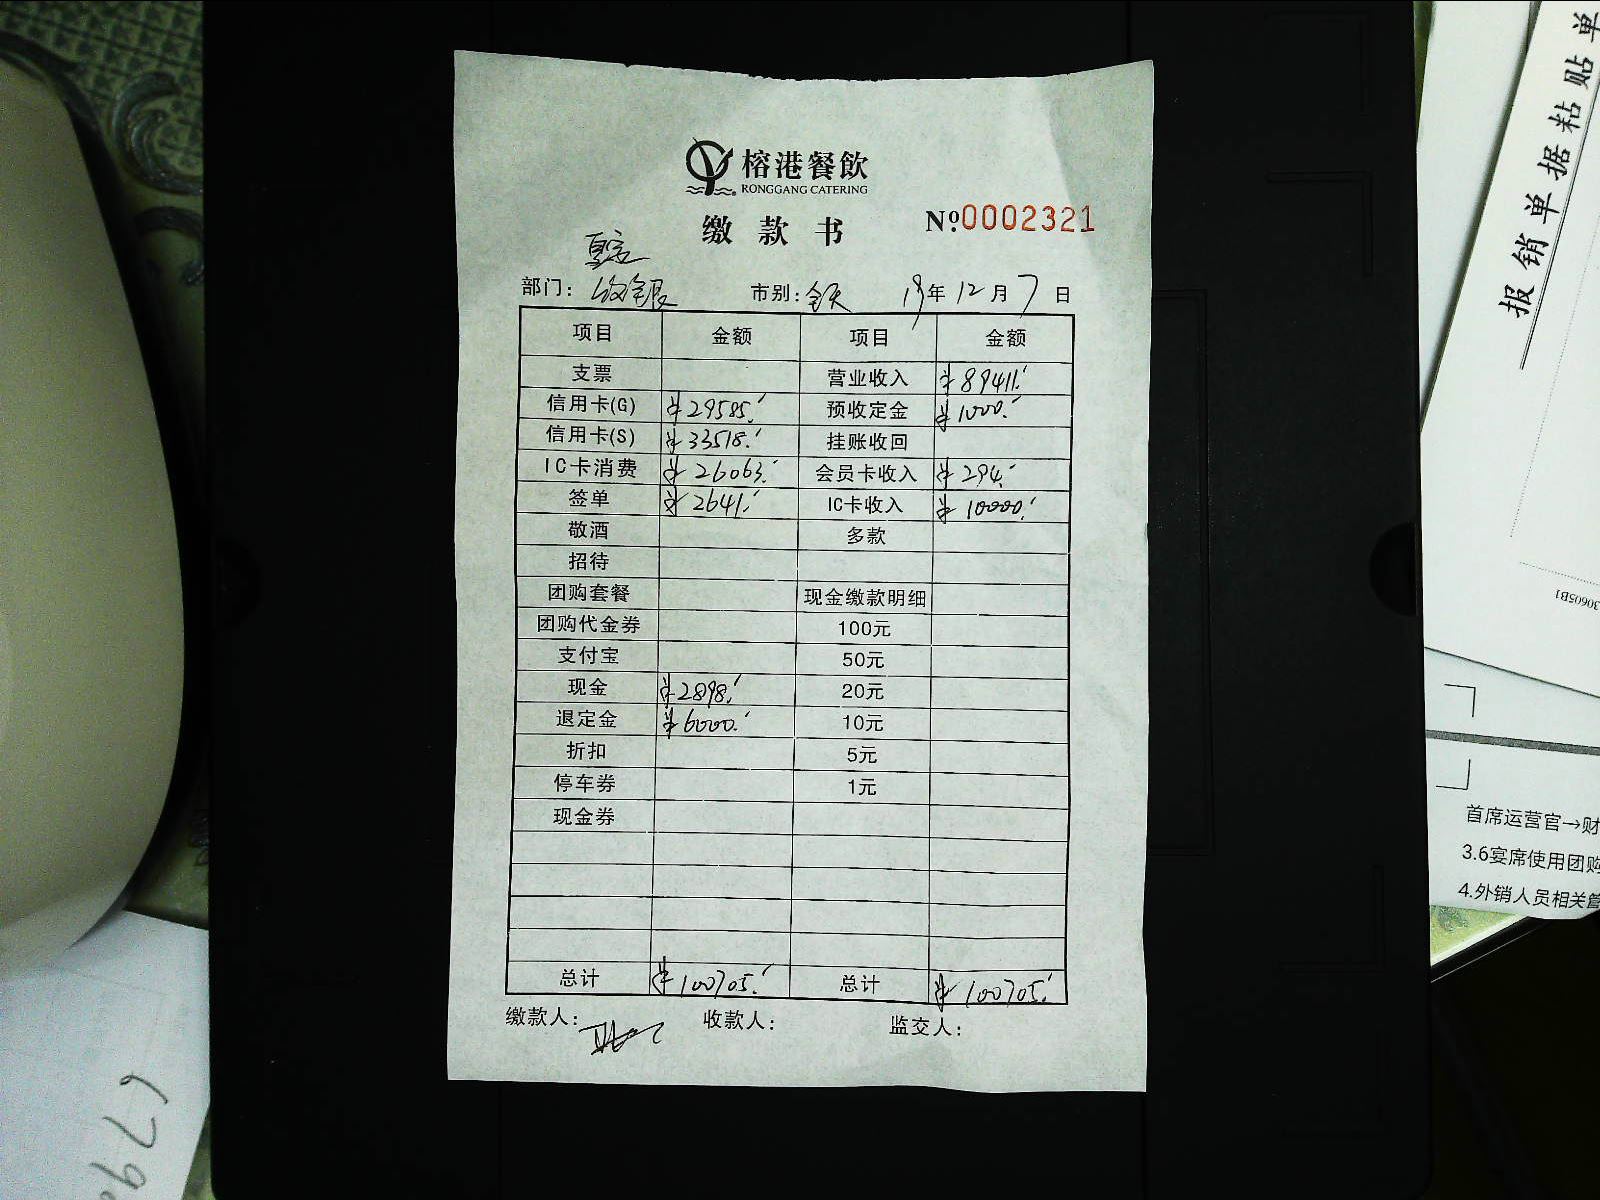 榕港餐飲
RONGGANG CATERING
缴款书 №:0002321
部门: 收银 市别: 全天 19年12月7日
项目 金额 项目 金额
支票 营业收入 ¥89411.-
信用卡(G) ¥29585.- 预收定金 ¥1000.-
信用卡(S) ¥33518.- 挂账收回
IC卡消费 ¥26063.- 会员卡收入 ¥294.-
签单 ¥2641.- IC卡收入 ¥10000.-
敬酒 多款
招待
团购套餐 现金缴款明细
团购代金券 100元
支付宝 50元
现金 ¥2898.- 20元
退定金 ¥6000.- 10元
折扣 5元
停车券 1元
现金券
总计 ¥100705.- 总计 ¥100705.-
缴款人: 收款人: 监交人:
报销单据粘贴单
30605B1
首席运营官→财
3.6宴席使用团购
4.外销人员相关管